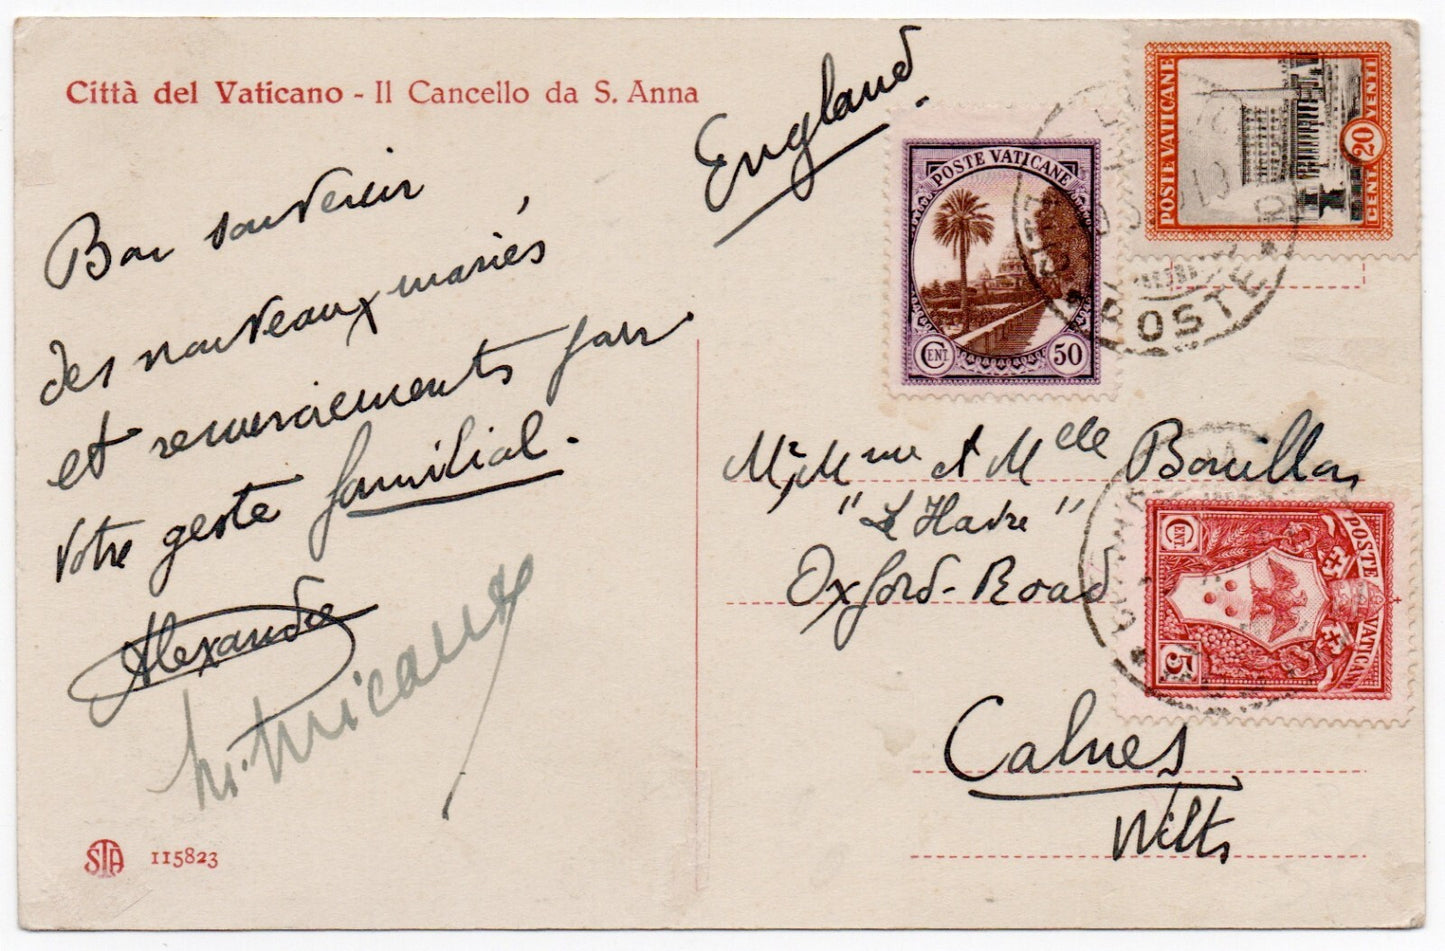 Città del Vaticano - Il Cancello da S. Anna
Bon souvenir
des nouveaux mariés,
et remerciements pour
votre geste familial.
Alexandre
STA 115823
England.
POSTE VATICANE
CENT. 50
POSTE VATICANE
CENT. 20 VENTI
POSTE
Mr, Mme et Mlle Bouillon
"Le Havre"
Oxford-Road
Calnes
Wilts
POSTE VATICANE
CENT. 5